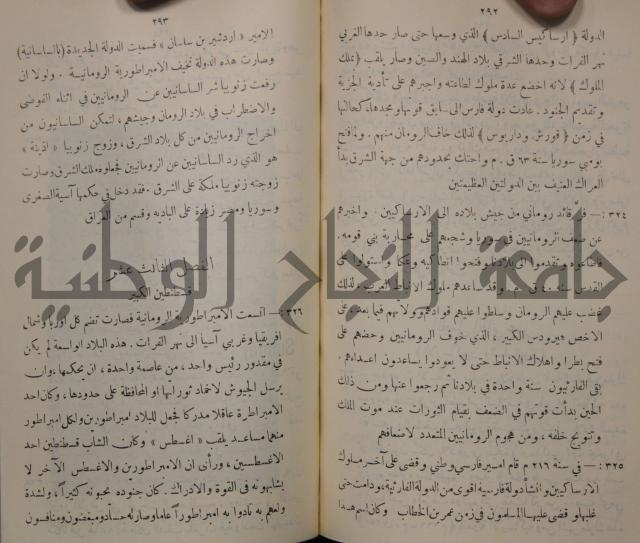 ٢٩٢
الدولة ( ارساكيس السادس ) الذي وسعها حتى صار حدها الغربي
نهر الفرات وحدها الشرقي بلاد الهند والصين وصار يلقب (ملك
الملوك ) لانه اخضع عدة ملوك لطاعته واجبرهم على تأدية الجزية
وتقديم الجنود . عادت دولة فارس الى سابق قوتها ومجدها، كحالها
في زمن ( قورش وداريوس ) لذلك خاف الرومان منهم . ولما فتح
بومبي سوريا سنة ٦٣ ق . م واحتك بحدودهم من جهة الشرق بدأ
العراك العنيف بين الدولتين العظيمتين
٣٢٤ :— فر قائد روماني من جيش بلاده الى الارساكيين . واخبرهم
عن ضعف الرومانيين في سوريا وشجعهم على محاربة بني قومه .
فاطاعوه وتقدموا الى بلاد فتحوا انطاكية واستولوا على
القدس سنة ٤٠ ق م . وقد ساعدهم ملوك الانباط العرب ، ولذلك
غضب عليهم الرومان وسلطوا عليهم قوادهم وولاتهم فيما بعد وعلى
الاخص هيرودس الكبير ، الذي خوف الرومانيين وحضهم على
فتح بطرا واهلاك الانباط حتى لا يعودوا يساعدون اعداءهم .
بقي الفارثيون سنة واحدة في بلادنا ثم رجعوا عنها ومن ذلك
الحين بدأت قوتهم في الضعف بقيام الثورات عند موت الملك
وتتويج خلفه ، ومن هجوم الرومانيين المتعدد لاضعافهم
٣٢٥ :— في سنة ٢١٦ م قام امير فارسي وطني وقضى على آخر ملوك
الارساكيين وانشأ دولة فارسية اقوى من الدولة الفارثية ، ودامت حتى
غلبها وقضى عليها المسلمون في زمن عمر بن الخطاب وكان اسم هذا
٢٩٣
الامير « اردشير بن ساسان » فسميت الدولة الجديدة (بالساسانية)
وصارت هذه الدولة تخيف الامبراطورية الرومانية . ولولا ان
رفعت زنوبيا شر الساسانيين عن الرومانيين في اثناء الفوضى
والاضطراب في بلاد الرومان وجيشهم ، لتمكن الساسانيون من
اخراج الرومانيين من كل بلاد الشرق ، وزوج زنوبيا « اذينة »
هو الذي رد الساسانيين عن الرومانيين فجعلوه ملك الشرق وصارت
زوجته زنوبيا ملكة على الشرق . فقد دخل في حكمها آسية الصغرى
وسوريا ومصر زيادة على البادية وقسم من العراق
جامعة النجاح الوطنية
الفصل الثالث عشر
قسطنطين الكبير
٣٢٦ — اتسعت الامبراطورية الرومانية فصارت تضم كل اوربا وشمال
افريقيا وغربي آسيا الى نهر الفرات . هذه البلاد الواسعة لم يكن
في مقدور رئيس واحد ، من عاصمة واحدة ، ان يحكمها ، وان
يرسل الجيوش لاخماد ثوراتها او المحافظة على حدودها ، وكان احد
الامبراطرة عاقلا مدركا فجعل للبلاد امبراطورين ولكل امبراطور
منهما مساعد يلقب « اغسطس » وكان الشاب قسطنطين احد
الاغسطسين ، ورأى ان الامبراطورين والاغسطس الآخر لا
يشابهونه في القوة والادراك . كان جنوده يحبونه كثيراً ، ولشدة
ولعهم به نادوا به امبراطوراً عاما وصار له حساد ومبغضون ومنافسون